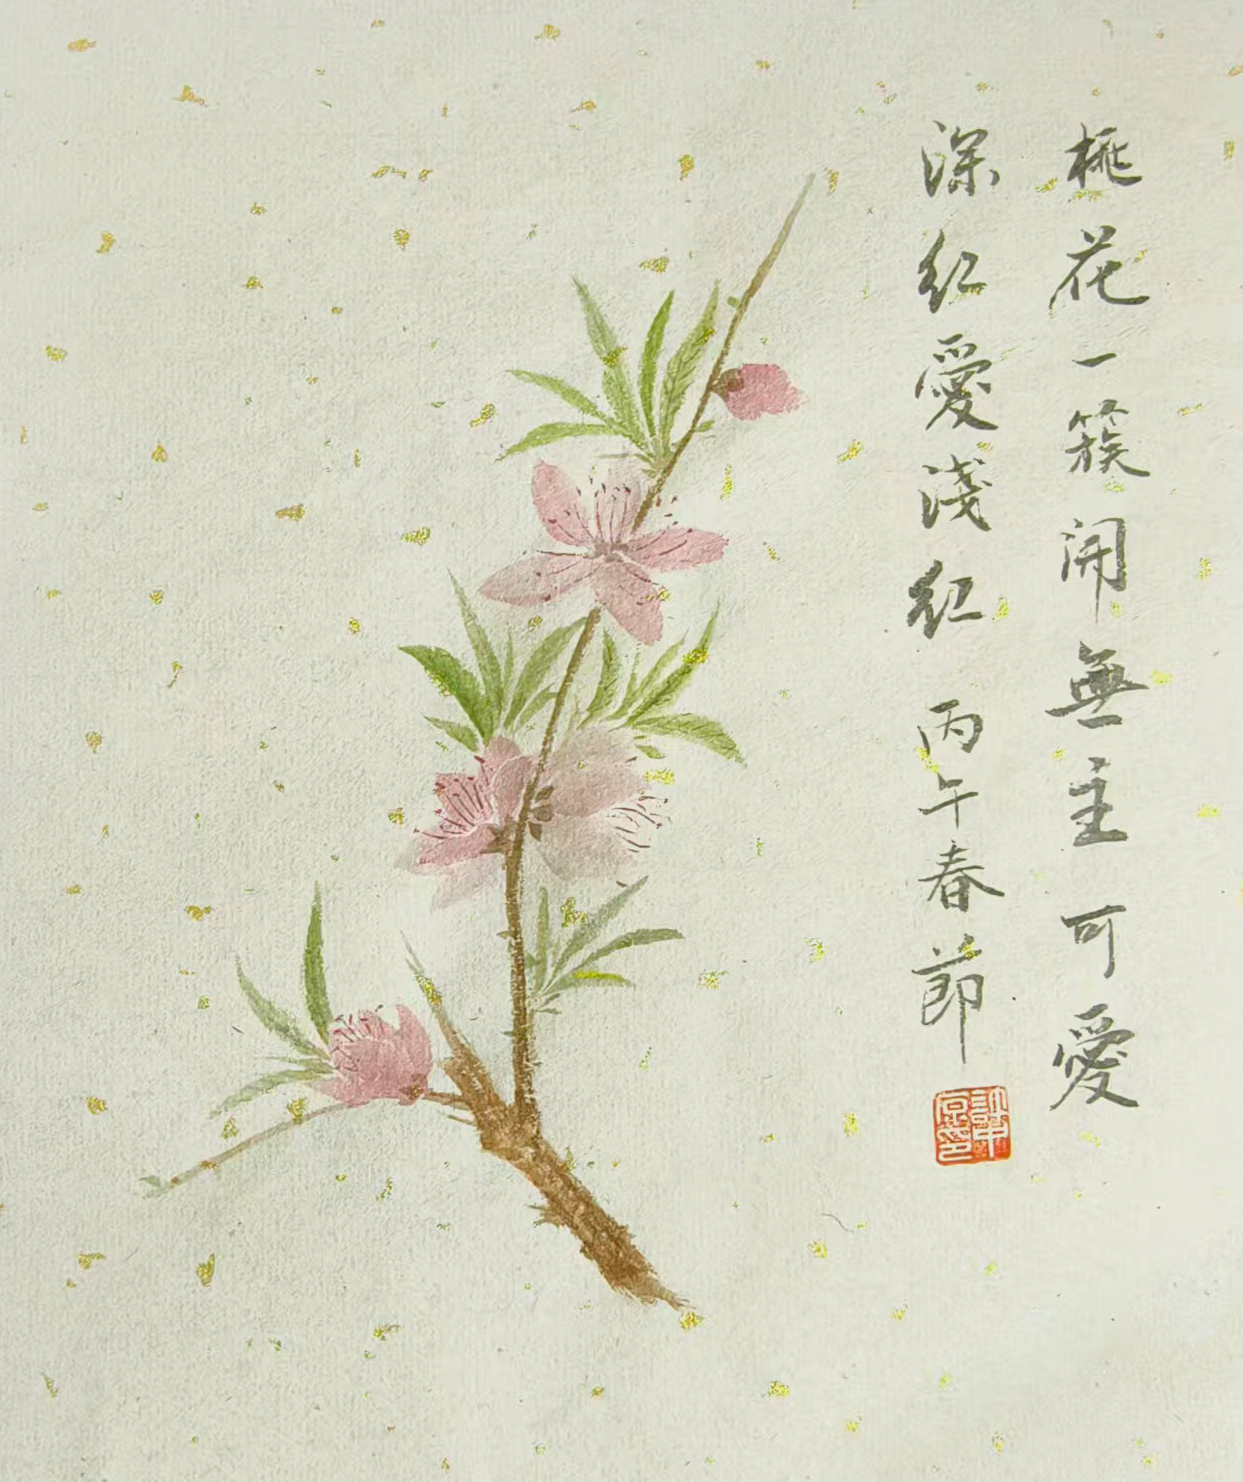 桃花一簇開無主可愛
深紅愛淺紅 丙午春節